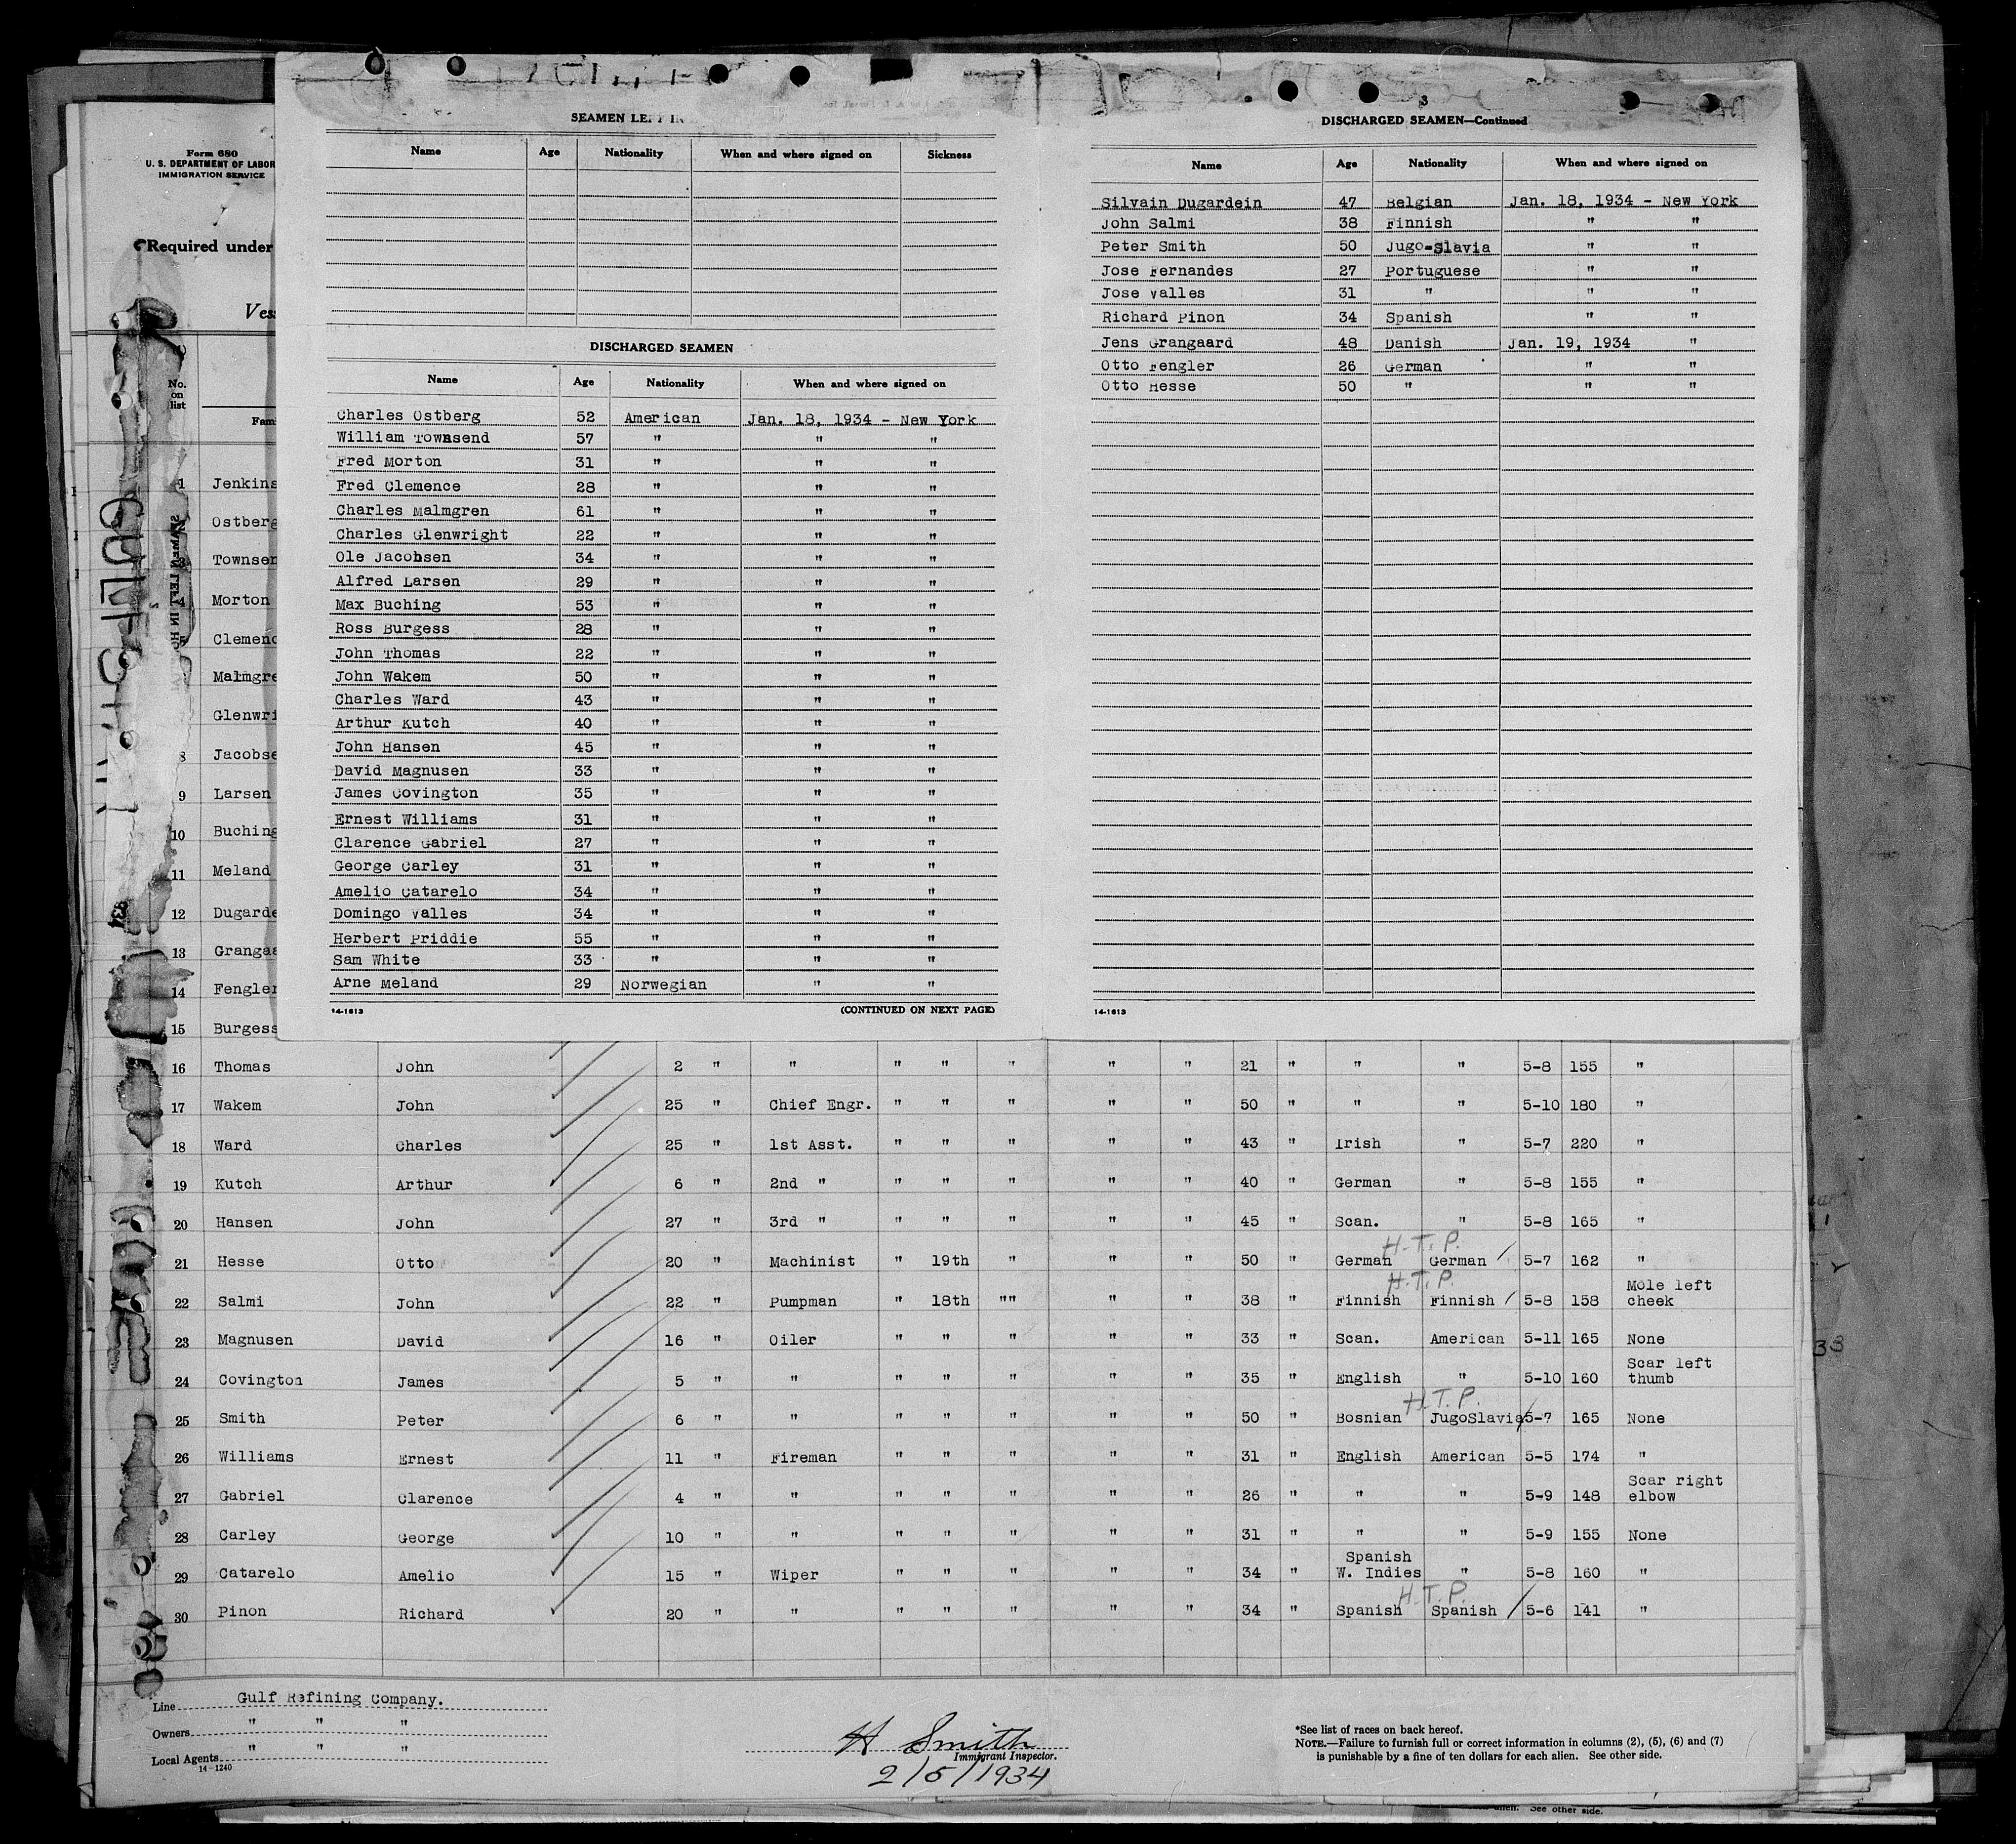 SEAMEN LEFT IN
Name Age Nationality When and where signed on Sickness
DISCHARGED SEAMEN
Name Age Nationality When and where signed on
Charles Ostberg 52 American Jan. 18, 1934 - New York
William Townsend 57 " " "
Fred Morton 31 " " "
Fred Clemence 28 " " "
Charles Malmgren 61 " " "
Charles Glenwright 22 " " "
Ole Jacobsen 34 " " "
Alfred Larsen 29 " " "
Max Buching 53 " " "
Ross Burgess 28 " " "
John Thomas 22 " " "
John Wakem 50 " " "
Charles Ward 43 " " "
Arthur Kutch 40 " " "
John Hansen 45 " " "
David Magnusen 33 " " "
James Covington 35 " " "
Ernest Williams 31 " " "
Clarence Gabriel 27 " " "
George Carley 31 " " "
Amelio Catarelo 34 " " "
Domingo Valles 34 " " "
Herbert Priddie 55 " " "
Sam White 33 " " "
Arne Meland 29 Norwegian " "
14-1613 (CONTINUED ON NEXT PAGE)
3
DISCHARGED SEAMEN—Continued
Name Age Nationality When and where signed on
Silvain Dugardein 47 Belgian Jan. 18, 1934 - New York
John Salmi 38 Finnish " "
Peter Smith 50 Jugo-Slavia " "
Jose Fernandes 27 Portuguese " "
Jose Valles 31 " " "
Richard Pinon 34 Spanish " "
Jens Grangaard 48 Danish Jan. 19, 1934 "
Otto Fengler 26 German " "
Otto Hesse 50 " " "
14-1613
Form 680
U. S. DEPARTMENT OF LABOR
IMMIGRATION SERVICE
Required under
Vess
No.
on
list
Fami
1 Jenkins
Ostberg
3 Townsen
4 Morton
5 Clemenc
Malmgre
Glenwri
8 Jacobse
9 Larsen
10 Buching
11 Meland
12 Dugarde
13 Grangaa
14 Fengler
15 Burgess
16 Thomas John 2 " " " " " " " 21 " " " 5-8 155 "
17 Wakem John 25 " Chief Engr. " " " " " 50 " " " 5-10 180 "
18 Ward Charles 25 " 1st Asst. " " " " " 43 " Irish " 5-7 220 "
19 Kutch Arthur 6 " 2nd " " " " " " 40 " German " 5-8 155 "
20 Hansen John 27 " 3rd " " " " " " 45 " Scan. " 5-8 165 "
H.T.P.
21 Hesse Otto 20 " Machinist " 19th " " " 50 " German German 5-7 162 "
H.T.P.
22 Salmi John 22 " Pumpman " 18th "" " " 38 " Finnish Finnish 5-8 158 Mole left cheek
23 Magnusen David 16 " Oiler " " " " " 33 " Scan. American 5-11 165 None
24 Covington James 5 " " " " " " " 35 " English " 5-10 160 Scar left thumb
H.T.P.
25 Smith Peter 6 " " " " " " " 50 " Bosnian JugoSlavia 5-7 165 None
26 Williams Ernest 11 " Fireman " " " " " 31 " English American 5-5 174 "
27 Gabriel Clarence 4 " " " " " " " 26 " " " 5-9 148 Scar right elbow
28 Carley George 10 " " " " " " " 31 " " " 5-9 155 None
29 Catarelo Amelio 15 " Wiper " " " " " 34 " Spanish W. Indies " 5-8 160 "
H.T.P.
30 Pinon Richard 20 " " " " " " " 34 " Spanish Spanish 5-6 141 "
Line Gulf Refining Company.
Owners " " "
Local Agents " " "
14-1240
H Smith
Immigrant Inspector.
2/5/1934
*See list of races on back hereof.
NOTE.—Failure to furnish full or correct information in columns (2), (5), (6) and (7)
is punishable by a fine of ten dollars for each alien. See other side.
33
alien. See other side.